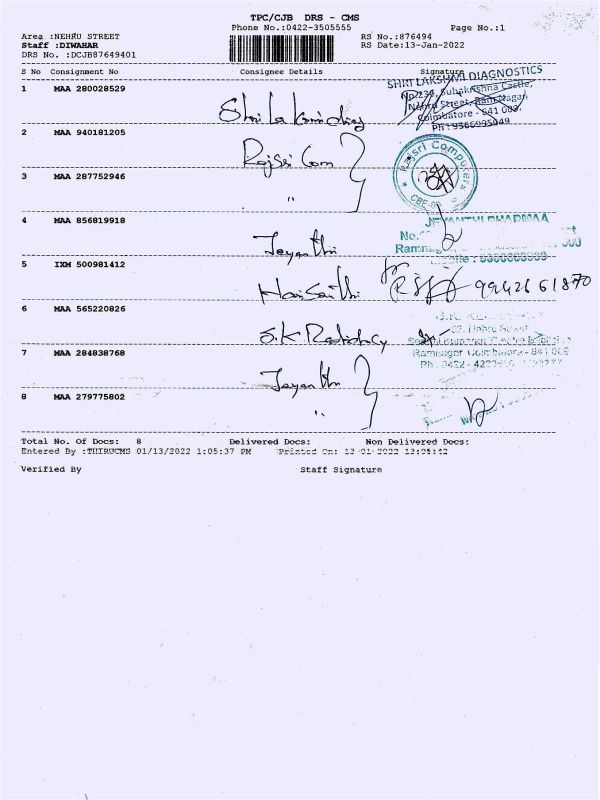 TPC/CJB DRS - CMS
Phone No.:0422-3505555 Page No.:1
Area :NEHRU STREET RS No.:876494
Staff :DIWAHAR RS Date:13-Jan-2022
DRS No. :DCJB87649401
S No Consignment No Consignee Details Signature
1 MAA 280028529
SHRI LAKSHMI DIAGNOSTICS
No:234, Subakrishna Castle,
Nehru Street, Ram Nagar,
Coimbatore - 641 009.
2 MAA 940181205
Rajsri Com
Rajsri Computers
CBE
3 MAA 287752946
"
4 MAA 856819918
JEYANTHI DHARMAA
No.
Ramnagar
Jeyanthi
Mobile :
5 IXM 500981412
Harisakthi
for
6 MAA 565220826
S.K
Ramnagar Coimbatore - 641 009
Ph : 0422 -
7 MAA 284838768
Jeyanthi
8 MAA 279775802
"
Total No. Of Docs: 8 Delivered Docs: Non Delivered Docs:
Entered By :THIRUCMS 01/13/2022 1:05:37 PM Printed On: 13-01-2022 13:05:42
Verified By Staff Signature